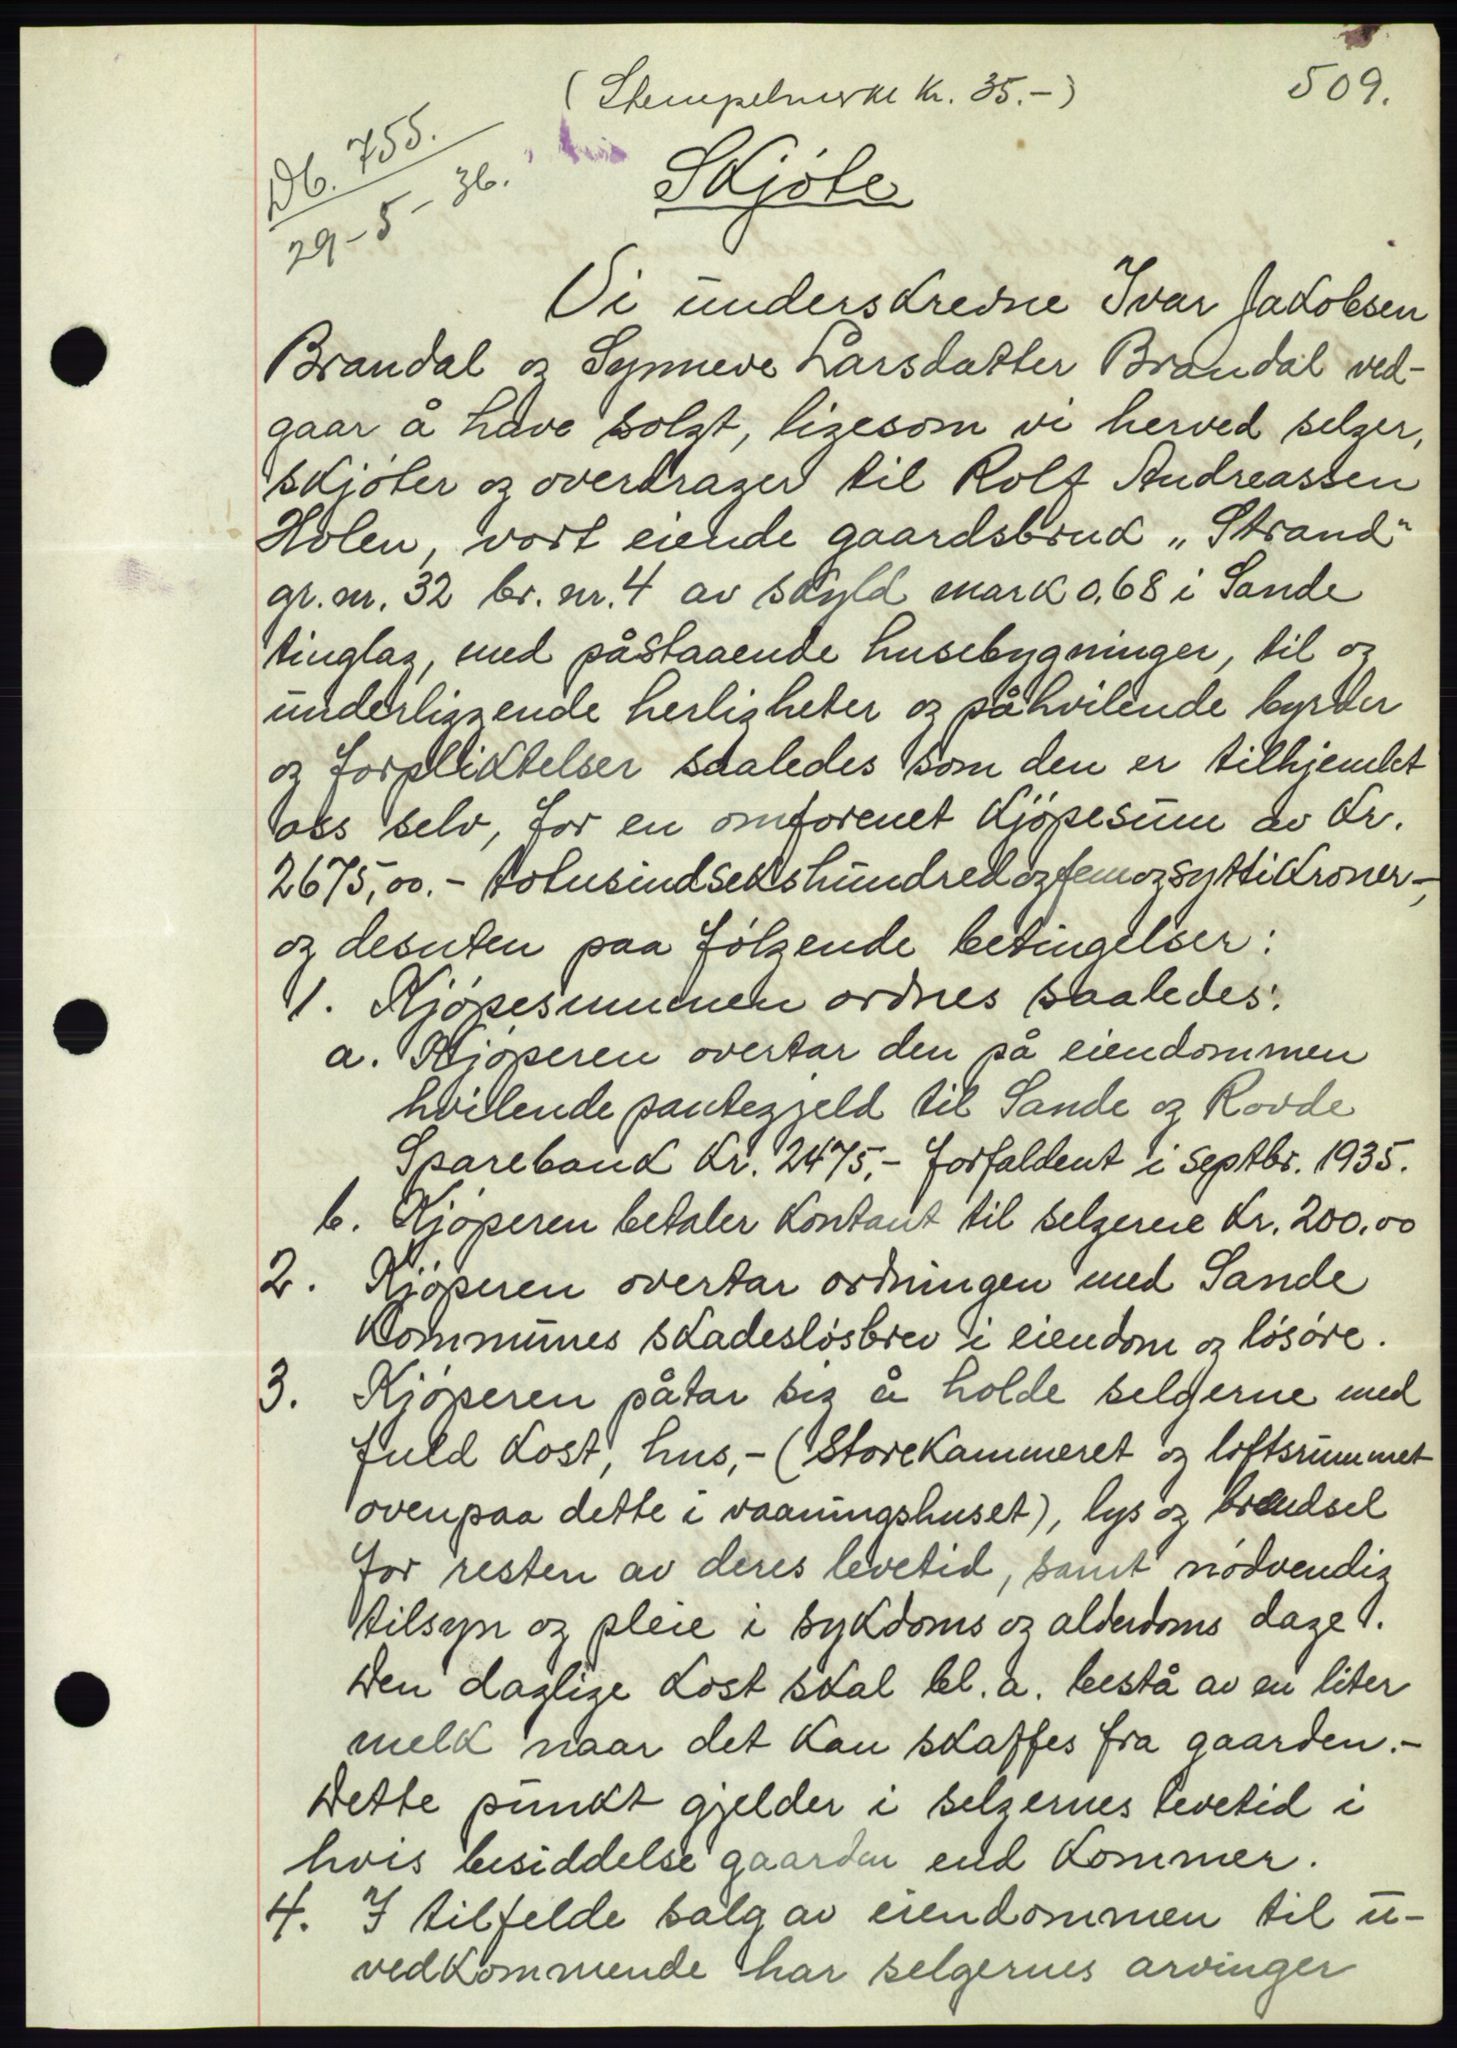 (Stempelmerke kr. 35.-)
509.
Db. 755.
29-5-36.
Skjöte
Vi underskrevne Ivar Jakobsen
Brandal og Synneve Larsdatter Brandal ved-
gaar å have solgt, ligesom vi herved selger,
skjöter og overdrager til Rolf Andreassen
Holen, vort eiende gaardsbruk „Strand"
gr. nr. 32 br. nr. 4 av skyld mark 0.68 i Sande
tinglag, med påstaaende husebygninger, til og
underliggende herligheter og påhvilende byrder
og forpliktelser saaledes som den er tilhjemlet
oss selv, for en omforenet kjöpesum av kr.
2675,00.- totusindsekshundredogfemogsyttikroner-,
og desuten paa fölgende betingelser:
1. Kjöpesummen ordnes saaledes:
a. Kjöperen overtar den på eiendommen
hvilende pantegjeld til Sande og Rovde
Sparebank kr. 2475,- forfaldent i septbr. 1935.
b. Kjöperen betaler kontant til selgerene kr. 200.00
2. Kjöperen overtar ordningen med Sande
kommunes skadeslösbrev i eiendom og lösöre.
3. Kjöperen påtar sig å holde selgerne med
fuld kost, hus,- (Storekammeret og loftsrummet
ovenpaa dette i vaaningshuset), lys og brendsel
for resten av deres levetid, samt nödvendig
tilsyn og pleie i sykdoms og alderdoms dage.
Den daglige kost skal bl. a. bestå av en liter
melk naar det kan skaffes fra gaarden.-
Dette punkt gjelder i selgernes levetid i
hvis besiddelse gaarden end kommer.
4. I tilfelde salg av eiendommen til u-
vedkommende har selgernes arvinger